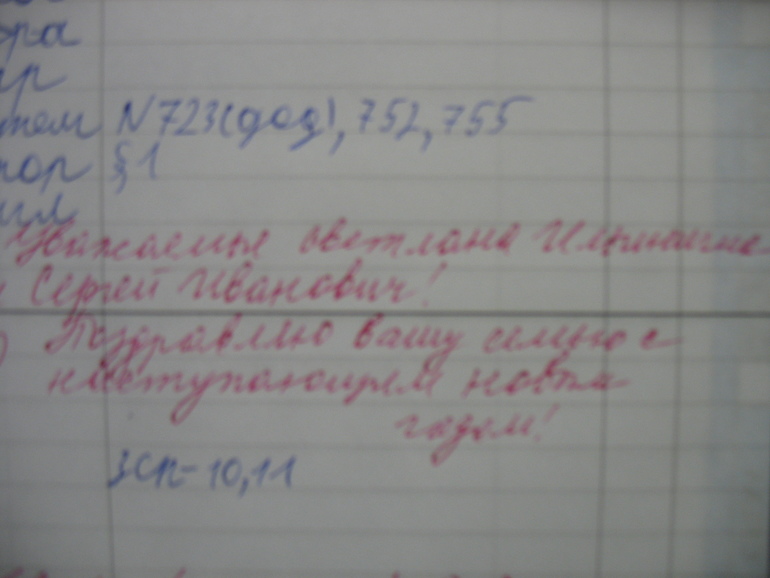 ора
ар
тем N 723(дод), 752, 755
тор § 1
ил
Уважаемые Светлана Ильинична
и Сергей Иванович!
Поздравляю вашу семью с
наступающем новым
годом!
ЗСп-10,11